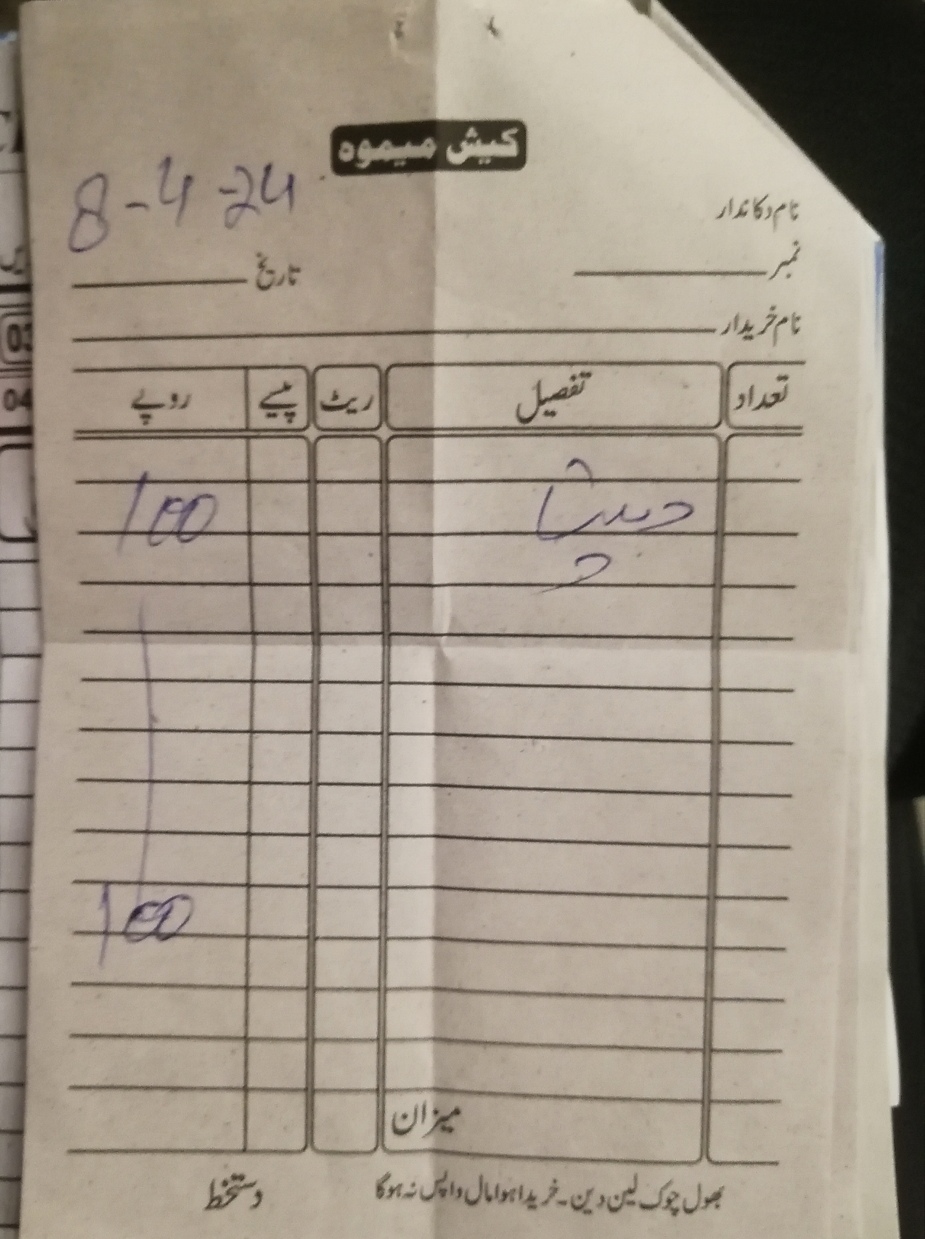 کیش میمو
8-4-24
نام دکاندار
نمبر تاریخ
نام خریدار
تعداد تفصیل ریٹ پیسے روپے
100
100
میزان
بھول چوک لین دین۔ خریدا ہوا مال واپس نہ ہوگا دستخط